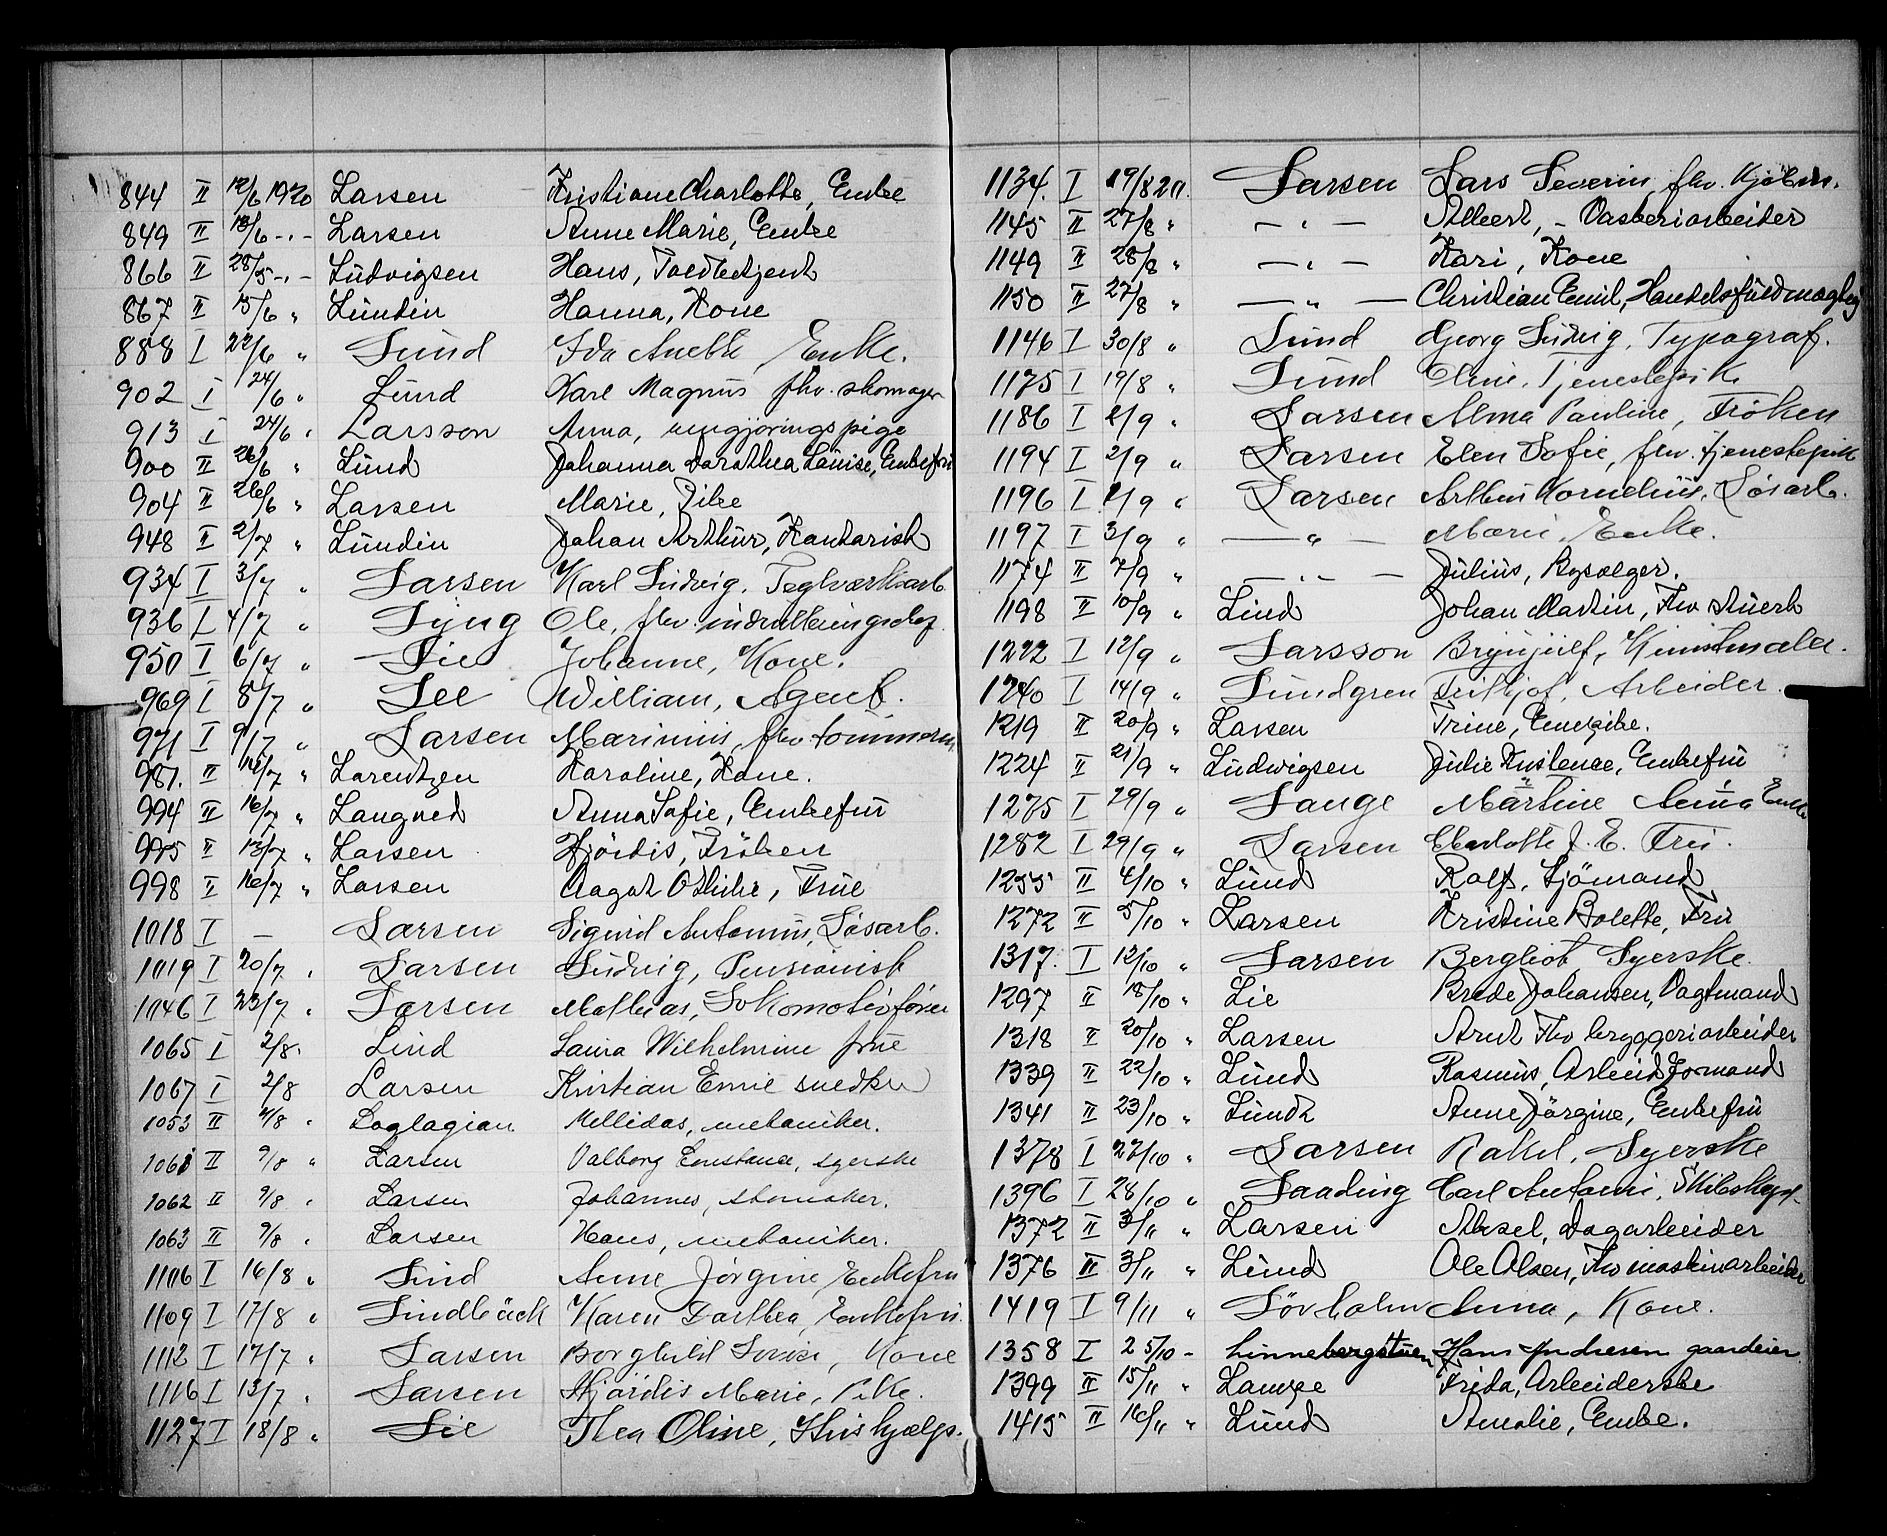 844 II 12/6 1920 Larsen Kristiane Charlotte, Enke
849 II 18/6 -"- Larsen Anne Marie, Enke
866 II 28/5 -"- Ludvigsen Hans, Toldbetjent
867 II 15/6 " Lundin Hanna, Kone
888 I 22/6 " Lund Ida Anette Enke.
902 I 24/6 " Lund Karl Magnus fhv. skomager
913 I 24/6 " Larsson Anna, rengjøringspige
900 II 26/6 " Lund Johanna Dorathea Louise, Enkefru
904 II 26/6 " Larsen Marie, Pike
948 II 2/7 " Lundin Johan Arthur, Kontorist
934 I 3/7 " Larsen Karl Ludvig. Teglværksarb.
936 I 4/7 " Lyng Ole, fhv.
950 I 6/7 " Lie Johanne, Kone.
969 I 8/7 " Lee William, Agent.
971 I 9/7 " Larsen Marinius, fhv tømmerm.
981. II 14/7 " Larentzen Karoline, Kone.
994 II 16/7 " Langved Anna Sofie, Enkefru
995 II 13/7 " Larsen Hjördis, Fröken
998 II 16/7 " Larsen Aagot Othilie, Frue
1018 I — Larsen Sigurd Antonius, Løsarb.
1019 I 20/7 " Larsen Ludvig, Pensionist
1046 I 23/7 " Larsen Mathias, Lokomotivfører
1065 I 2/8 " Lind Laura Wilhelmine frue
1067 I 2/8 Larsen Kristian Emil snedker
1053 II 4/8 " Loglagian Mellidas, mekaniker.
1061 II 9/8 " Larsen Valborg Constance, syerske
1062 II 9/8 " Larsen Johannes, skomaker.
1063 II 9/8 " Larsen Hans, mekaniker.
1106 I 16/8 " Lind Anne Jørgine, Enkefru
1109 I 17/8 " Lindbäck Karen Dorthea, Enkefru.
1112 I 17/7 " Larsen Borghild Lovise, Kone
1116 I 13/7 " Larsen Hjördis Marie, Pike.
1127 I 18/8 " Lie Thea Oline, Hushjælps.
1134. I 19/8 20. Larsen Lars Severin, fhv. Kjøbm.
1145 II 27/8 " — " — Albert, - Vaskeriarbeider
1149 II 28/8 " — " — Kari, Kone
1150 II 27/8 " — " — Christian Emil, Handelsfuldmægtig
1146 I 30/8 " Lund Georg Ludvig, Typograf.
1175 I 19/8 " Lund Eline, Tjenestepike
1186 I 2/9 " Larsen Alma Pauline, Frøken
1194 I 2/9 " Larsen Elen Sofie, fhv. tjenestepike
1196 I 2/9 " Larsen Arthur Kornelius, Løsarb.
1197 I 3/9 " — " — Maren. Enke.
1174 II 7/9 " — " — Julius, Bysælger.
1198 II 10/9 " Lind Johan Martin, Fhv stuert
1222 I 12/9 " Larsson Brynjulf, Kunstmaler.
1240 I 14/9 " Lundgren Fritjof, Arbeider.
1219 II 20/9 " Larsen Trine, Enepike.
1224 II 21/9 " Ludwigsen Julie Kristence, Enkefru
1275 I 29/9 " Lange Martine Anna Enke
1282 I 29/9 " Larsen Charlotte J. E. Fru.
1255 II 4/10 " Lund Rolf, Sjömand
1272 II 5/10 " Larsen Kristine Bolette, Fru
1317. I 12/10 " Larsen Bergliot Syerske
1297 II 18/10 " Lie Brede Johansen, Vagtmand
1318 II 20/10 " Larsen Arnt Fhv bryggeriarbeider
1339 II 22/10 " Lund Rasmus, Arbeidsformand
1341 II 23/10 " Lundt Anne Jörgine, Enkefru
1378 I 27/10 " Larsen Rakel, Syerske
1396 I 28/10 " Laading Carl Antoni, Skibskapt.
1372 II 3/11 " Larsen Aksel, Dagarbeider
1376 II 3/11 " Lund Ole Olsen, Fhv maskinarbeider
1419 I 9/11 " Løvholm Anna, Kone.
1358 I 25/10 - Linnebergstuen Hans Andresen gaardeier
1399 II 15/11 " Lange Frida, Arbeiderske
1415 II 16/11 " Lund Amalie, Enke.